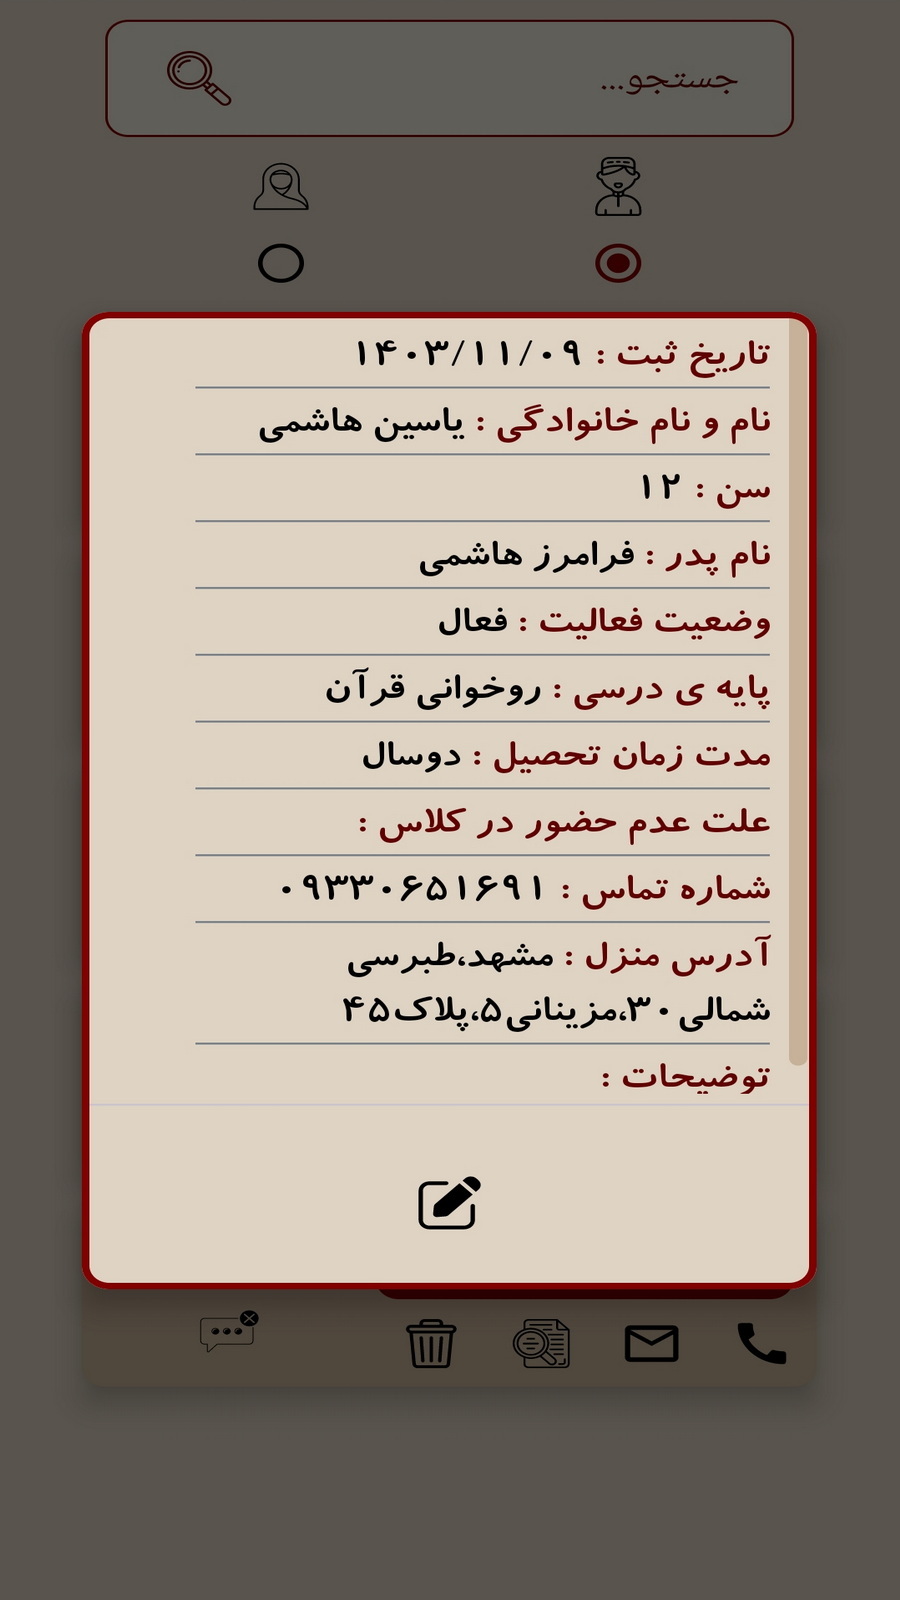 جستجو...
تاریخ ثبت : ۱۴۰۳/۱۱/۰۹
نام و نام خانوادگی : یاسین هاشمی
سن : ۱۲
نام پدر : فرامرز هاشمی
وضعیت فعالیت : فعال
پایه ی درسی : روخوانی قرآن
مدت زمان تحصیل : دوسال
علت عدم حضور در کلاس :
شماره تماس : ۰۹۳۳۰۶۵۱۶۹۱
آدرس منزل : مشهد،طبرسی
شمالی۳۰،مزینانی۵،پلاک۴۵
توضیحات :